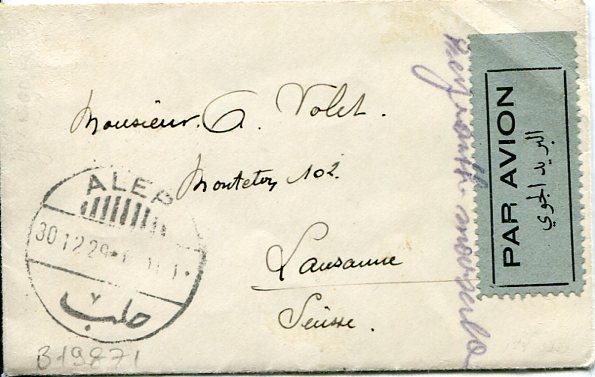 Monsieur A. Volet.
Montetan 102.
Lausanne
Suisse.
ALEP
30 12 29
حلب
B19871
PAR AVION
البريد الجوي